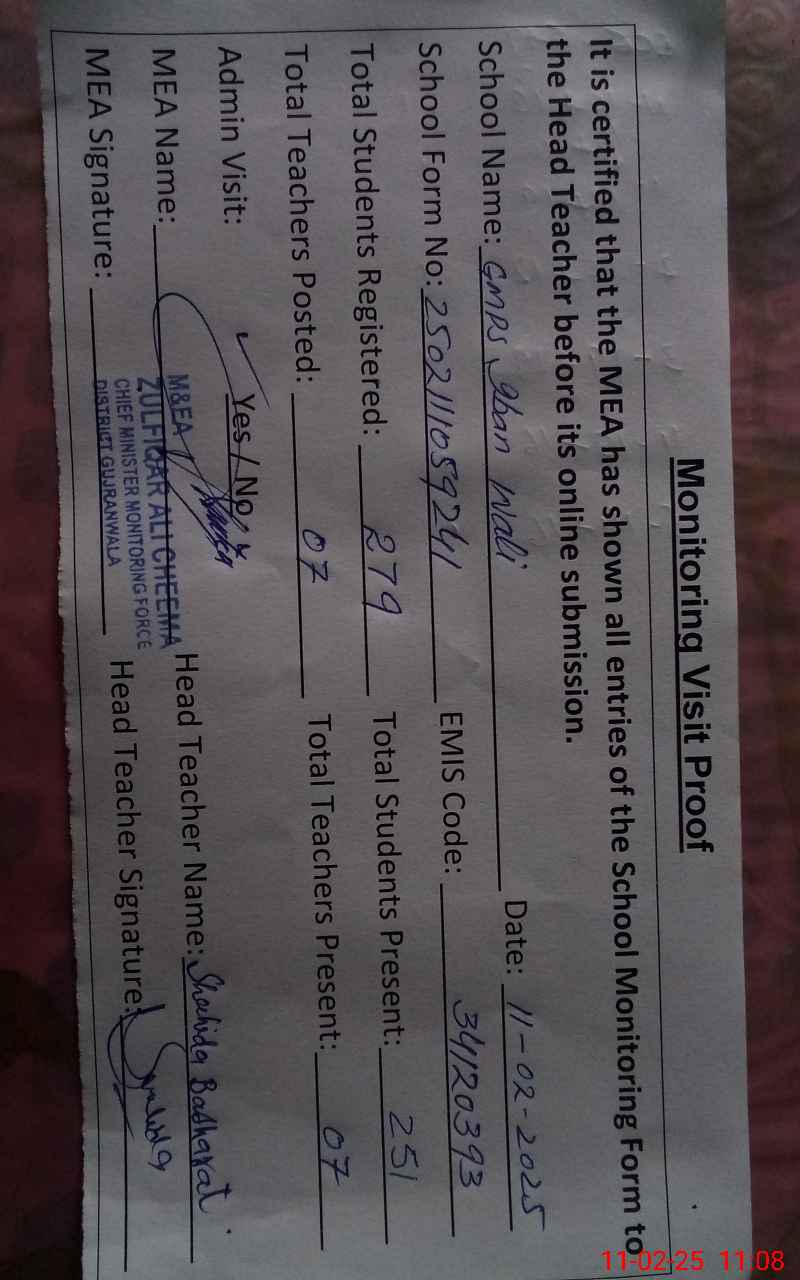 Monitoring Visit Proof
It is certified that the MEA has shown all entries of the School Monitoring Form to
the Head Teacher before its online submission.
School Name: GMPS Wali Date: 11-02-2025
School Form No: 250211105924 EMIS Code: 34120393
Total Students Registered: 279 Total Students Present: 251
Total Teachers Posted: 07 Total Teachers Present: 07
Admin Visit: ✓ Yes / No
MEA Name: Head Teacher Name: Shahida Basharat
MEA Signature: Head Teacher Signature: Shahida
M&EA
ZULFIQAR ALI CHEEMA
CHIEF MINISTER MONITORING FORCE
DISTRICT GUJRANWALA
11-02-25 11:08